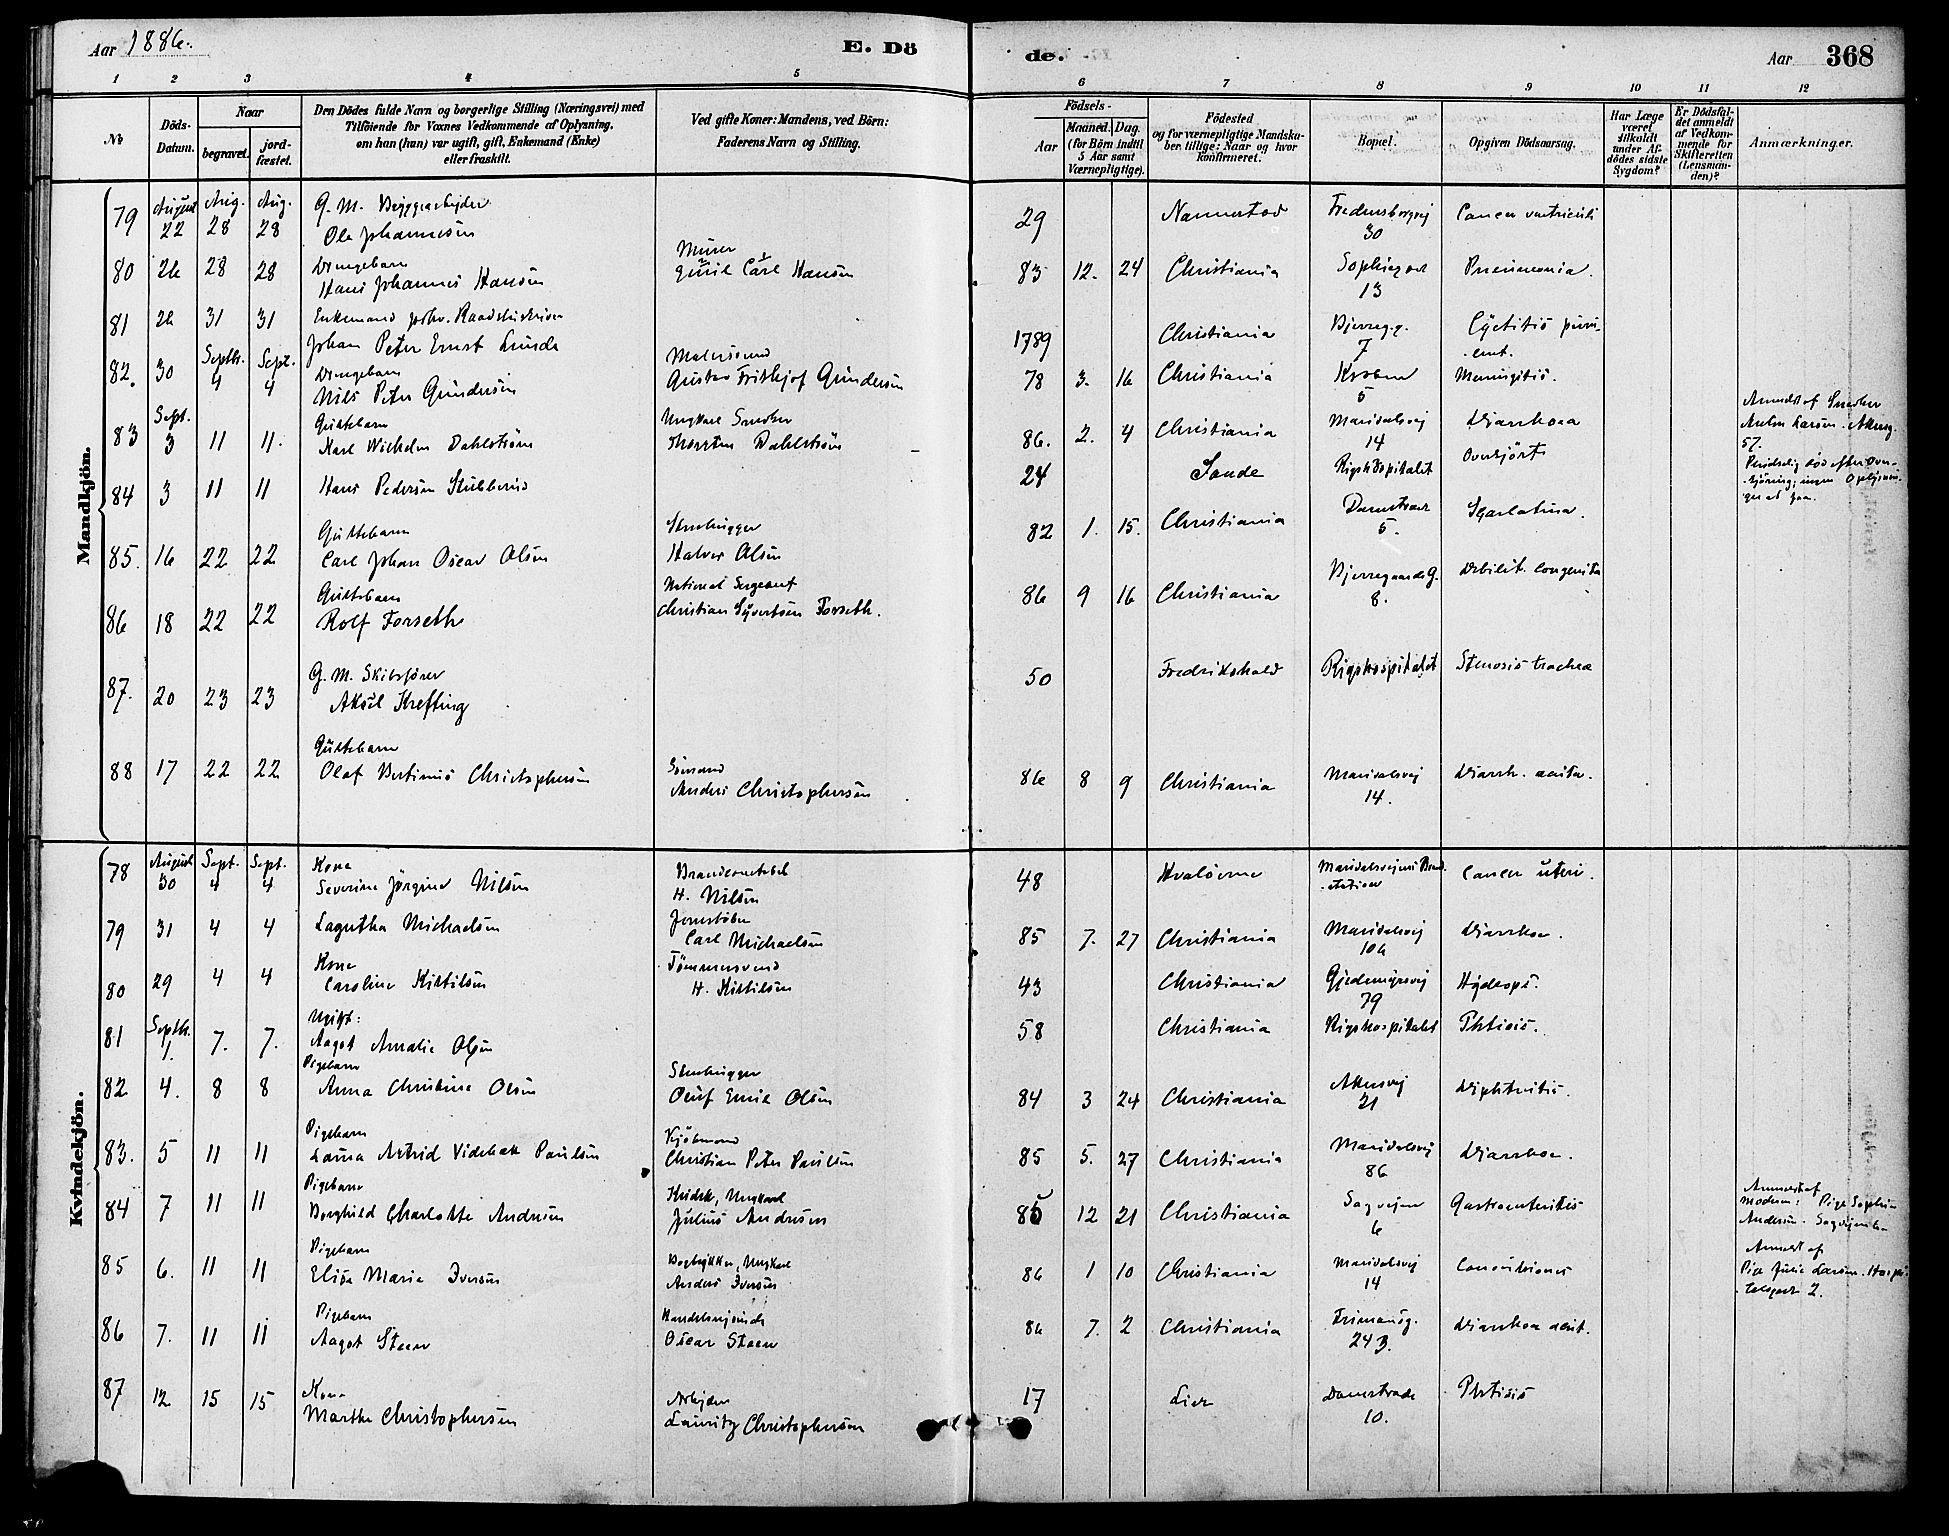 Aar 1886.
E. Dö
de.
Aar
368
1 2 3 4 5 6 7 8 9 10 11 12
No
Döds-
Datum.
Naar
begravet.
jord-
fæstet.
Den Dödes fulde Navn og borgerlige Stilling (Næringsvei) med
Tilföiende for Voxnes Vedkommende af Oplysning,
om han (hun) var ugift, gift, Enkemand (Enke)
eller fraskilt.
Ved gifte Koner: Mandens, ved Börn:
Faderens Navn og Stilling.
Födsels-
Aar
Maaned.
Dag.
(for Börn indtil
5 Aar samt
Værnepligtige).
Födested
og for værnepligtige Mandska-
ber tillige: Naar og hvor
konfirmeret.
Bopæl.
Opgiven Dödsaarsag.
Har Læge
været
tilkaldt
under Af-
dödes sidste
Sygdom?
Er Dödsfal-
det anmeldt
af Vedkom-
mende for
Skifteretten
(Lensman-
den)?
Anmærkninger.
Mandkjön.
79 August 22 Aug. 28 Aug. 28 G. M. Bryggearbeider
Ole Johannesen 29 Nannestad Fredensborgvej 30 Cancer ventriculi
80 26 28 28 Drengebarn
Hans Johannes Hansen Murer
Emil Carl Hansen 83 12. 24 Christiania Sophiegad 13 Pneumonia.
81 26 31 31 Enkemand
Johan Peter Ernst Lunde 1789 Christiania Bjerreg. 7 Cystitis puru-
lent.
82. 30 Septb. 4 Sept. 4 Drengebarn
Nils Peter Gundersen Malersvend
Gustav Frithjof Gundersen 78 3. 16 Christiania 5 Meningitis.
83 Sept. 3 11 11. Guttebarn
Karl Wilhelm Dahlström Ungkarl Snedker
Thorsten Dahlström 86. 2. 4 Christiania Maridalsvej 14 Diarrhoea Anmeldt af Snedker
Anton Larsen. Akersg.
57.
84 3 11 11 Hans Pedersen Stubberud 24 Sande Rigshospitalet Overkjört Pludselig död efter Over-
kjöring; ingen Oplysnin-
ger at faa.
85. 16 22 22 Guttebarn
Carl Johan Oscar Olsen Stenhugger
Halvor Olsen 82 1. 15. Christiania Damstræd 5. Scarlatina.
86 18 22 22 Guttebarn
Rolf Forseth National Sergeant
Christian Syvertsen Forseth. 86 9 16 Christiania Bjerregaards G. 8. Debilit. congenita
87. 20 23 23 G. M. Skibsförer
Aksel Krefting 50 Fredrikshald Rigshospitalet Stenosis trachea
88 17 22 22 Guttebarn
Olaf Bertinius Christophersen Sömand
Anders Christophersen 86 8 9 Christiania Maridalsvej 14. Diarrh. acuta.
Kvindekjön.
78 August 30 Sept. 4 Sept. 4 Kone
Severine Jörgine Nilsen Brandconstabel
H. Nilsen 48 Hvalöerne Maridalsveiens Brand-
station Cancer uteri.
79 31 4 4 Lagertha Michaelsen Jernstöber
Carl Michaelsen 85 7. 27 Christiania Maridalsvej 106 Diarrhoe.
80 29 4 4 Kone
Caroline Kittilsen Tömmersvend
H. Kittilsen 43 Christiania Gjedemyrsvej 79 Hydrops.
81 Septb. 1. 7. 7. Ugift:
Aagot Amalie Olsen 58 Christiania Rigshospitalet Phtisis.
82 4. 8 8 Pigebarn
Anna Christine Olsen Stenhugger
Oluf Emil Olsen 84 3 24 Christiania Akersvej 21 Diphteritis.
83. 5 11 11 Pigebarn
Laura Astrid Videbæk Paulsen Kjöbmand
Christian Peter Paulsen 85 5. 27 Christiania Maridalsvej 86 Diarrhoe.
84 7 11 11 Pigebarn
Borghild Charlotte Andersen Kudsk, Ungkarl
Julius Andersen 85 12 21 Christiania Sagveien 6 Gastroenteritis Anmeldt af
Moderen: Pige Sophie
Andersen. Sagveien 6.
85 6. 11 11 Pigebarn
Elise Marie Iversen Bogtrykker, Ungkarl
Anders Iversen 86 1 10 Christiania Maridalsvej 14 Convulsiones Anmeldt af
Pige Julie Larsen. Hospi-
talsgade 2.
86 7. 11 11 Pigebarn
Aagot Steen Handelsbetjent
Oscar Steen 86 7. 2 Christiania Trimansg. 24 B. Diarrhoe acut.
87 12 15 15 Kone
Marthe Christophersen Arbejder
Lauritz Christophersen 17 Lier Damstræde 10. Phtisis